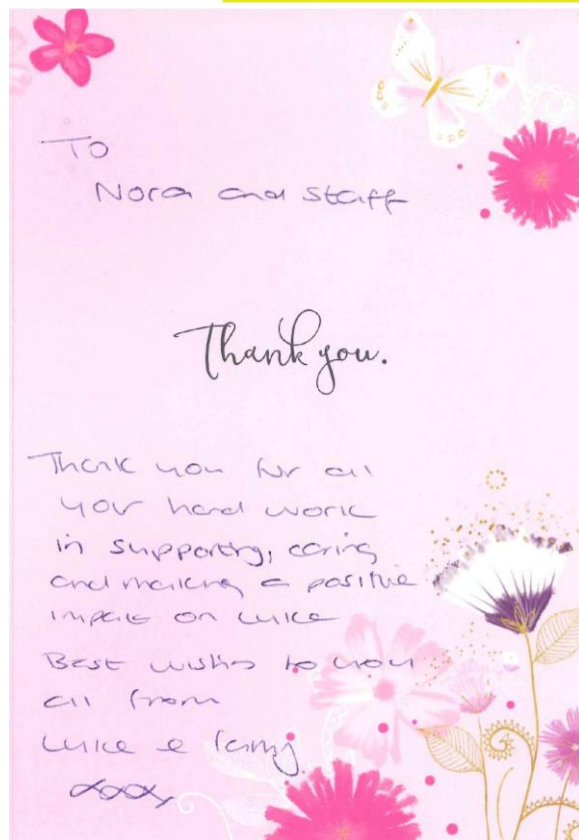 To
Nora and staff
Thank you.
Thank you for all
your hard work
in supporting, caring
and making a positive
impact on Luke
Best wishes to you
all from
Luke & family
xxxx